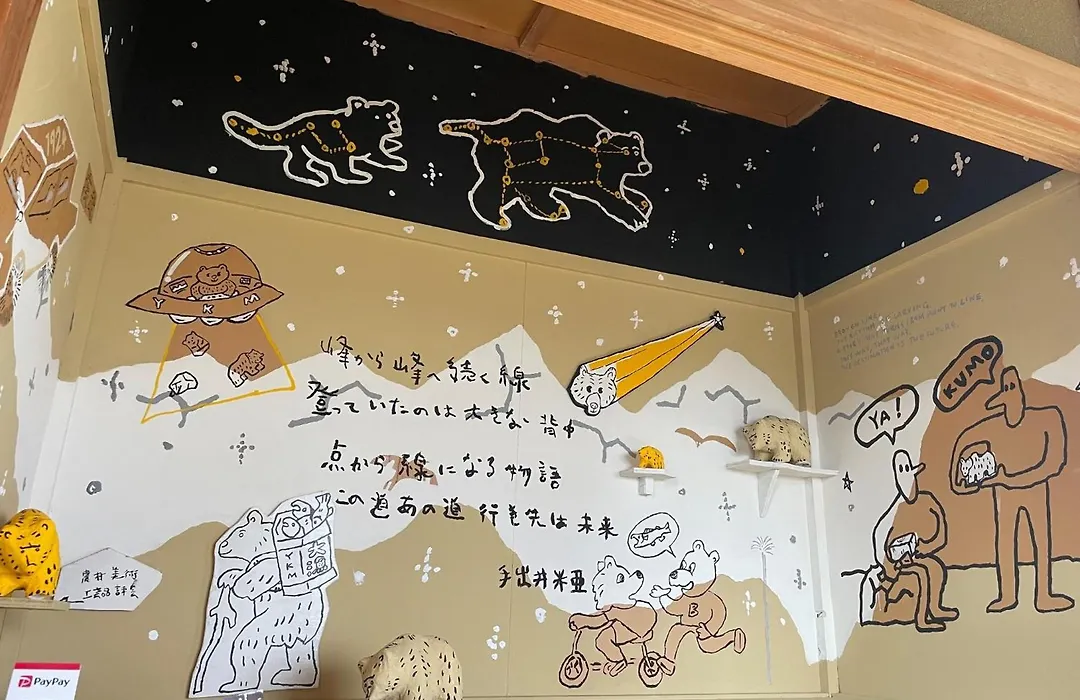 192
Y K M
峰から峰へ続く線
登っていたのは大きない背中
点から線になる物語
この道あの道 行き先は未来
手出井米亜
YA!
KUMO
YKM
B
農村美術
工芸品評会
PayPay